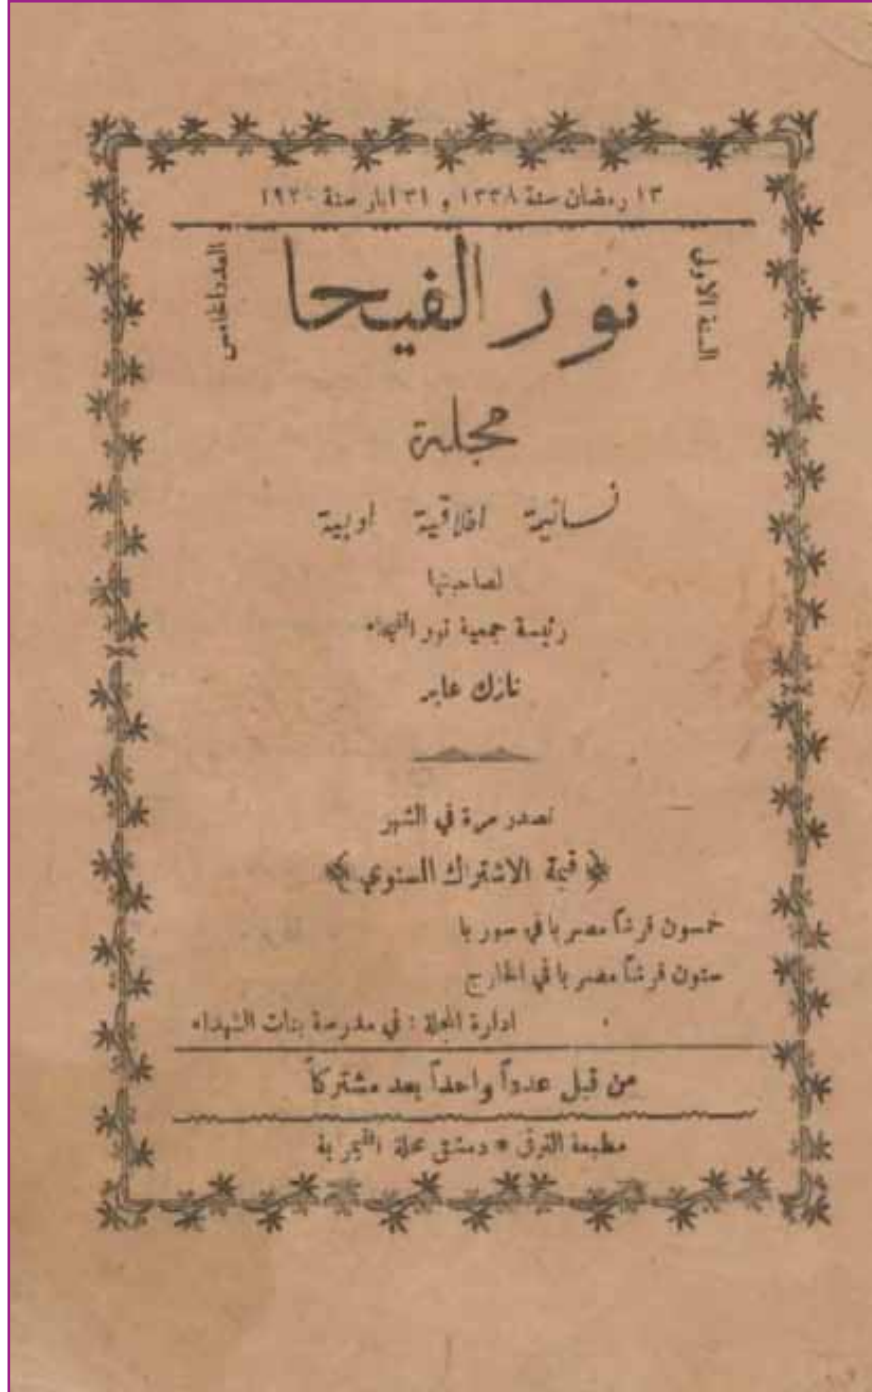 ١٣ رمضان سنة ١٣٣٨ و ٣١ ايار سنة ١٩٢٠
السنة الاولى
نور الفيحا
العدد الخامس
مجلة
نسائية اخلاقية ادبية
لصاحبتها
رئيسة جمعية نور الفيحاء
نازك عابد
تصدر مرة في الشهر
قيمة الاشتراك السنوي
خمسون قرشاً مصريا في سوريا
ستون قرشاً مصريا في الخارج
ادارة المجلة : في مدرسة بنات الشهداء
من قبل عدداً واحداً يعد مشتركاً
مطبعة الترقي * دمشق محلة القيمرية